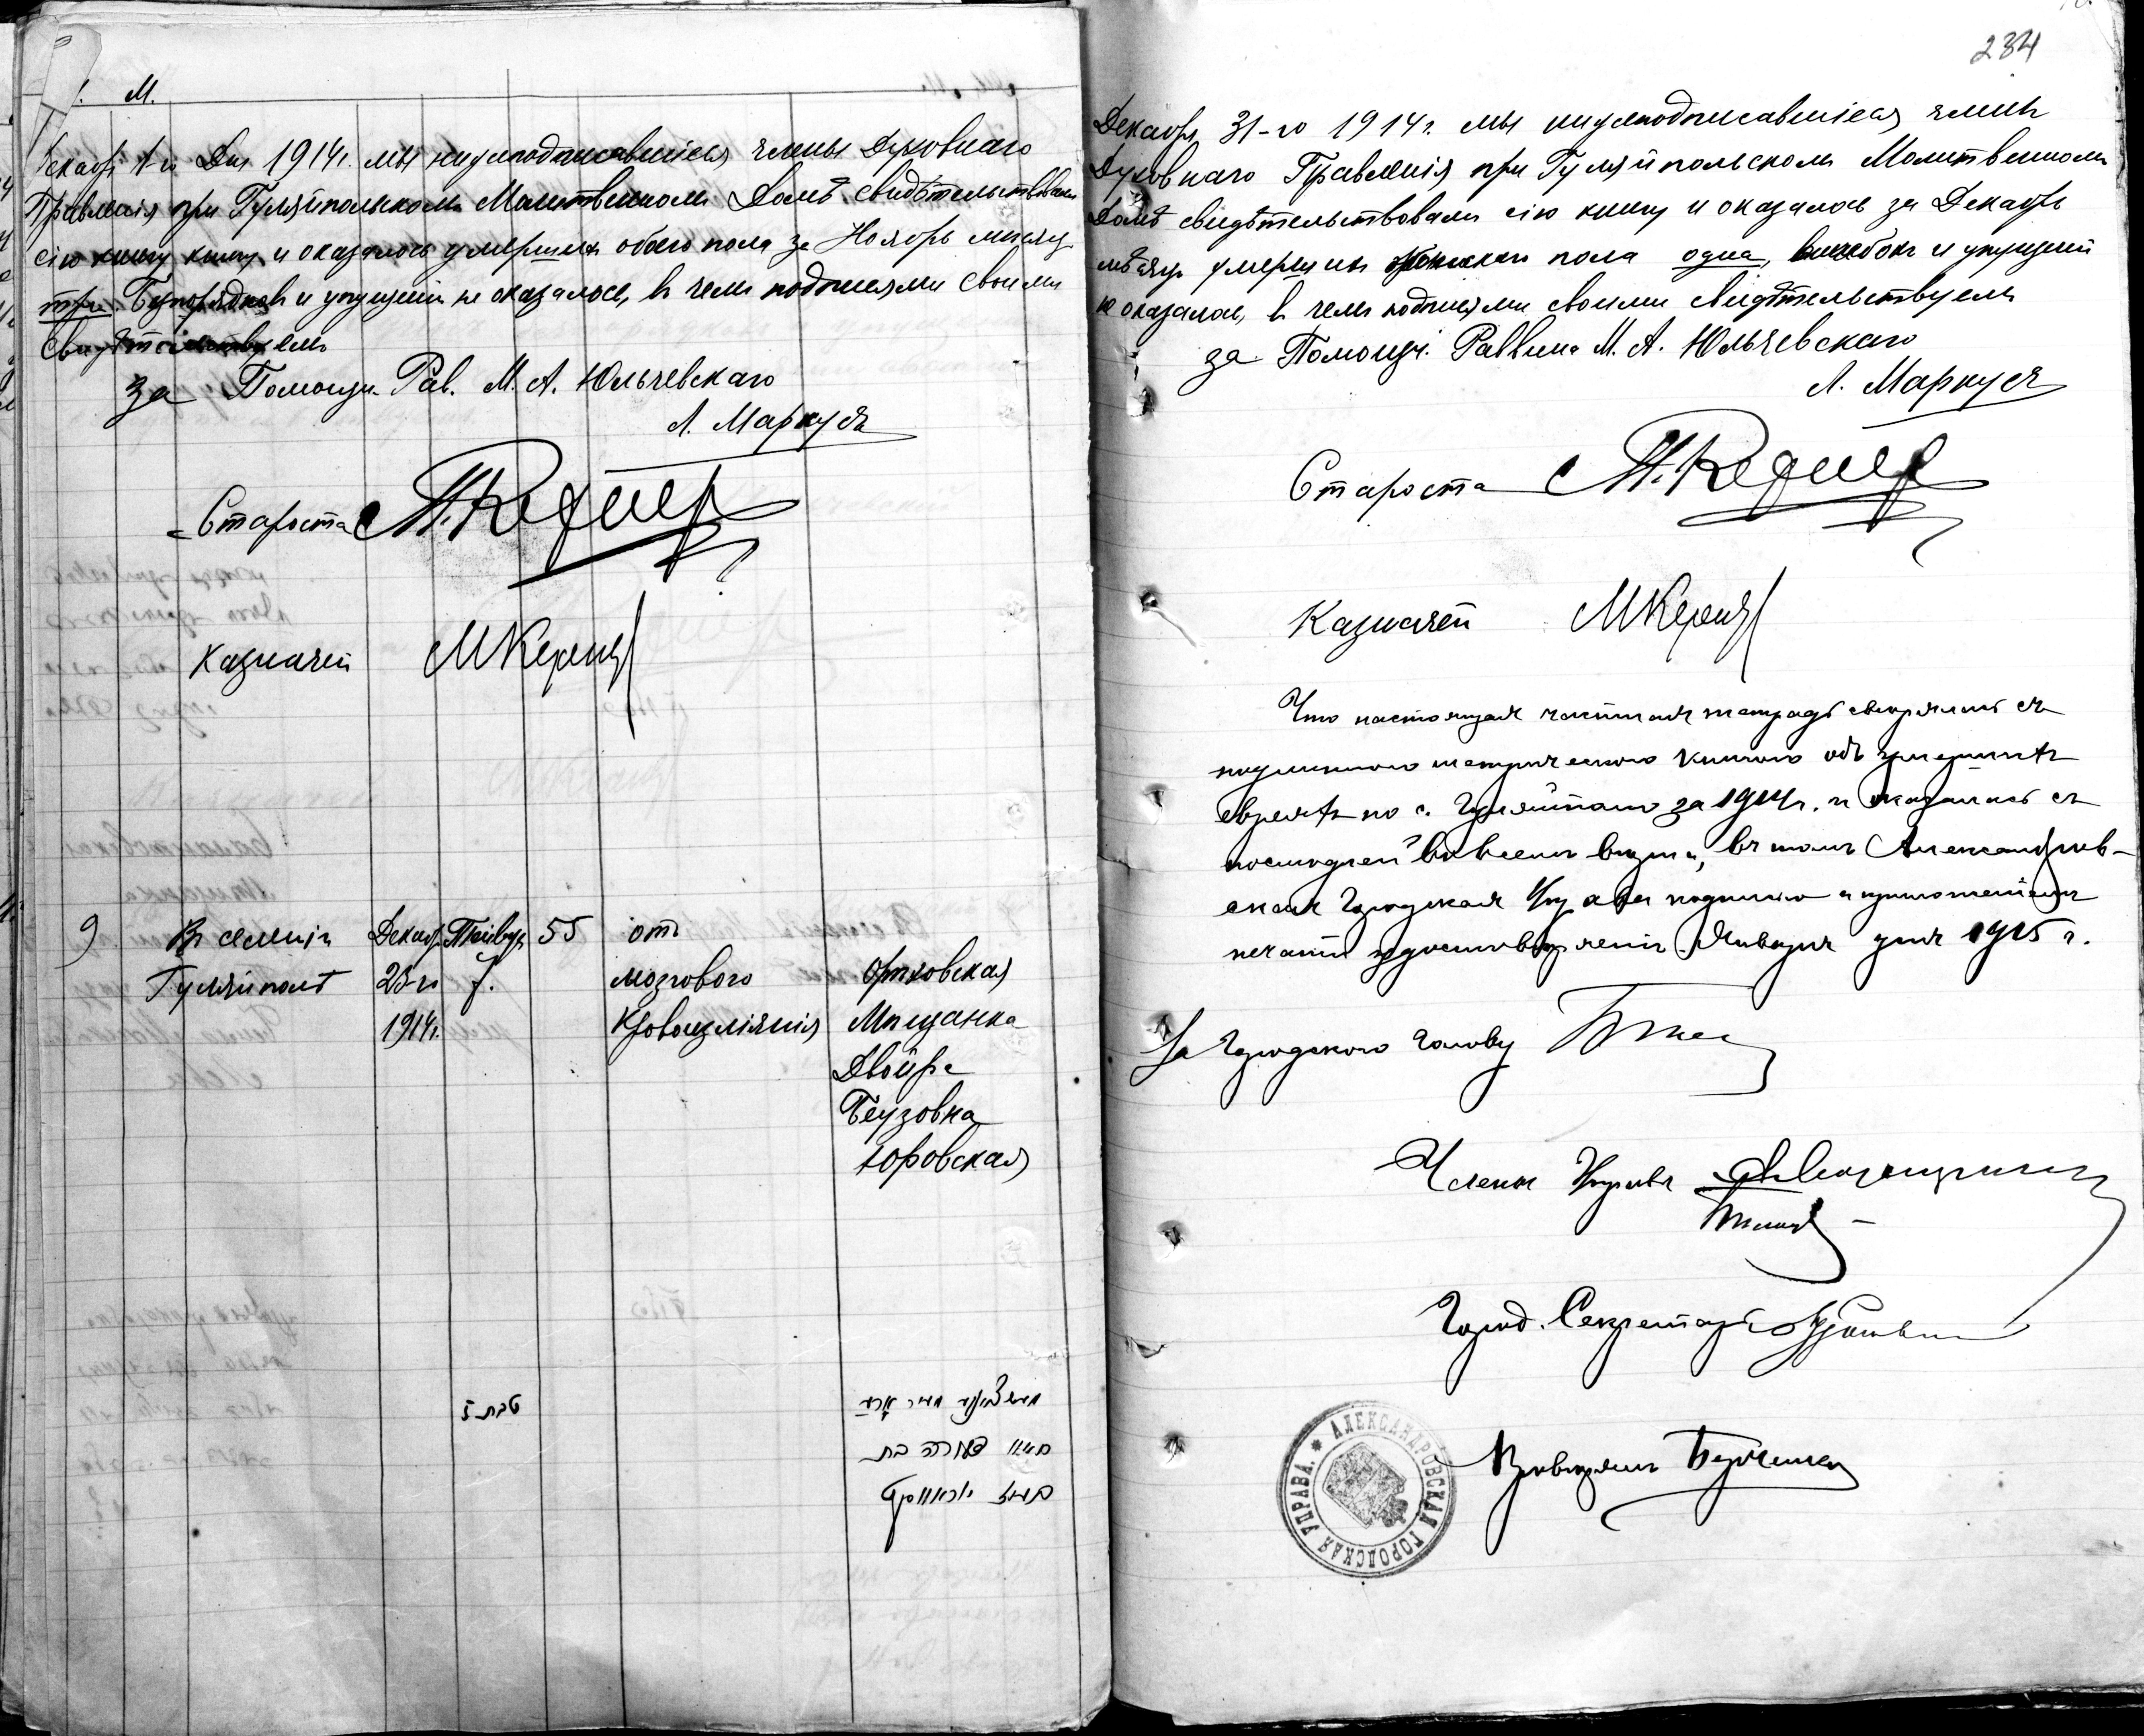 М.
Декабр. 1-го Дня 1914г. мы нижеподписавшіеся члены Духовнаго
Правленія при Гуляйпольском Молитвенном Домѣ свидѣтельствовали
сію книгу и оказалось умерших обоего пола за Ноябрь мѣсяц
три. Безпорядков и упущеній не оказалось, в чем подписями своими
Свидѣтельствуем
за Помощн. Рав. М. А. Юльевскаго
Л. Маркусъ
Староста
Казначей
9 В селеніи Декабр. Тейвус 55 отъ
Гуляйполѣ 23-го 7. мозгового Орѣховская
1914г. Кровоизліянія Мѣщанка
Двойра
Беузовна
Юровская
טבת ז
234
Декабря 31-го 1914г. мы нижеподписавшіеся члены
Духовнаго Правленія при Гуляйпольском Молитвенном
Домѣ свидѣтельствовали сію книгу и оказалось за Декабрь
мѣсяцъ умерших пола одна, и упущеній
не оказалось, в чем подписями своими свидѣтельствуем
за Помощн. Раввина М. А. Юльевскаго
Л. Маркусъ
Староста
Казначей
Что настоящая тетрадь свѣрялась съ
подлинною метрическою книгою объ умершихъ
евреяхъ по с. Гуляйполю за 1914г. и оказалась съ
послѣдней во всемъ вѣрна, въ томъ Александров-
ская Городская Управа подписью и приложеніемъ
печати удостовѣряетъ Января дня 1915 г.
За Городского Голову
Члены Управы
Город. Секретарь
АЛЕКСАНДРОВСКАЯ ГОРОДСКАЯ УПРАВА.